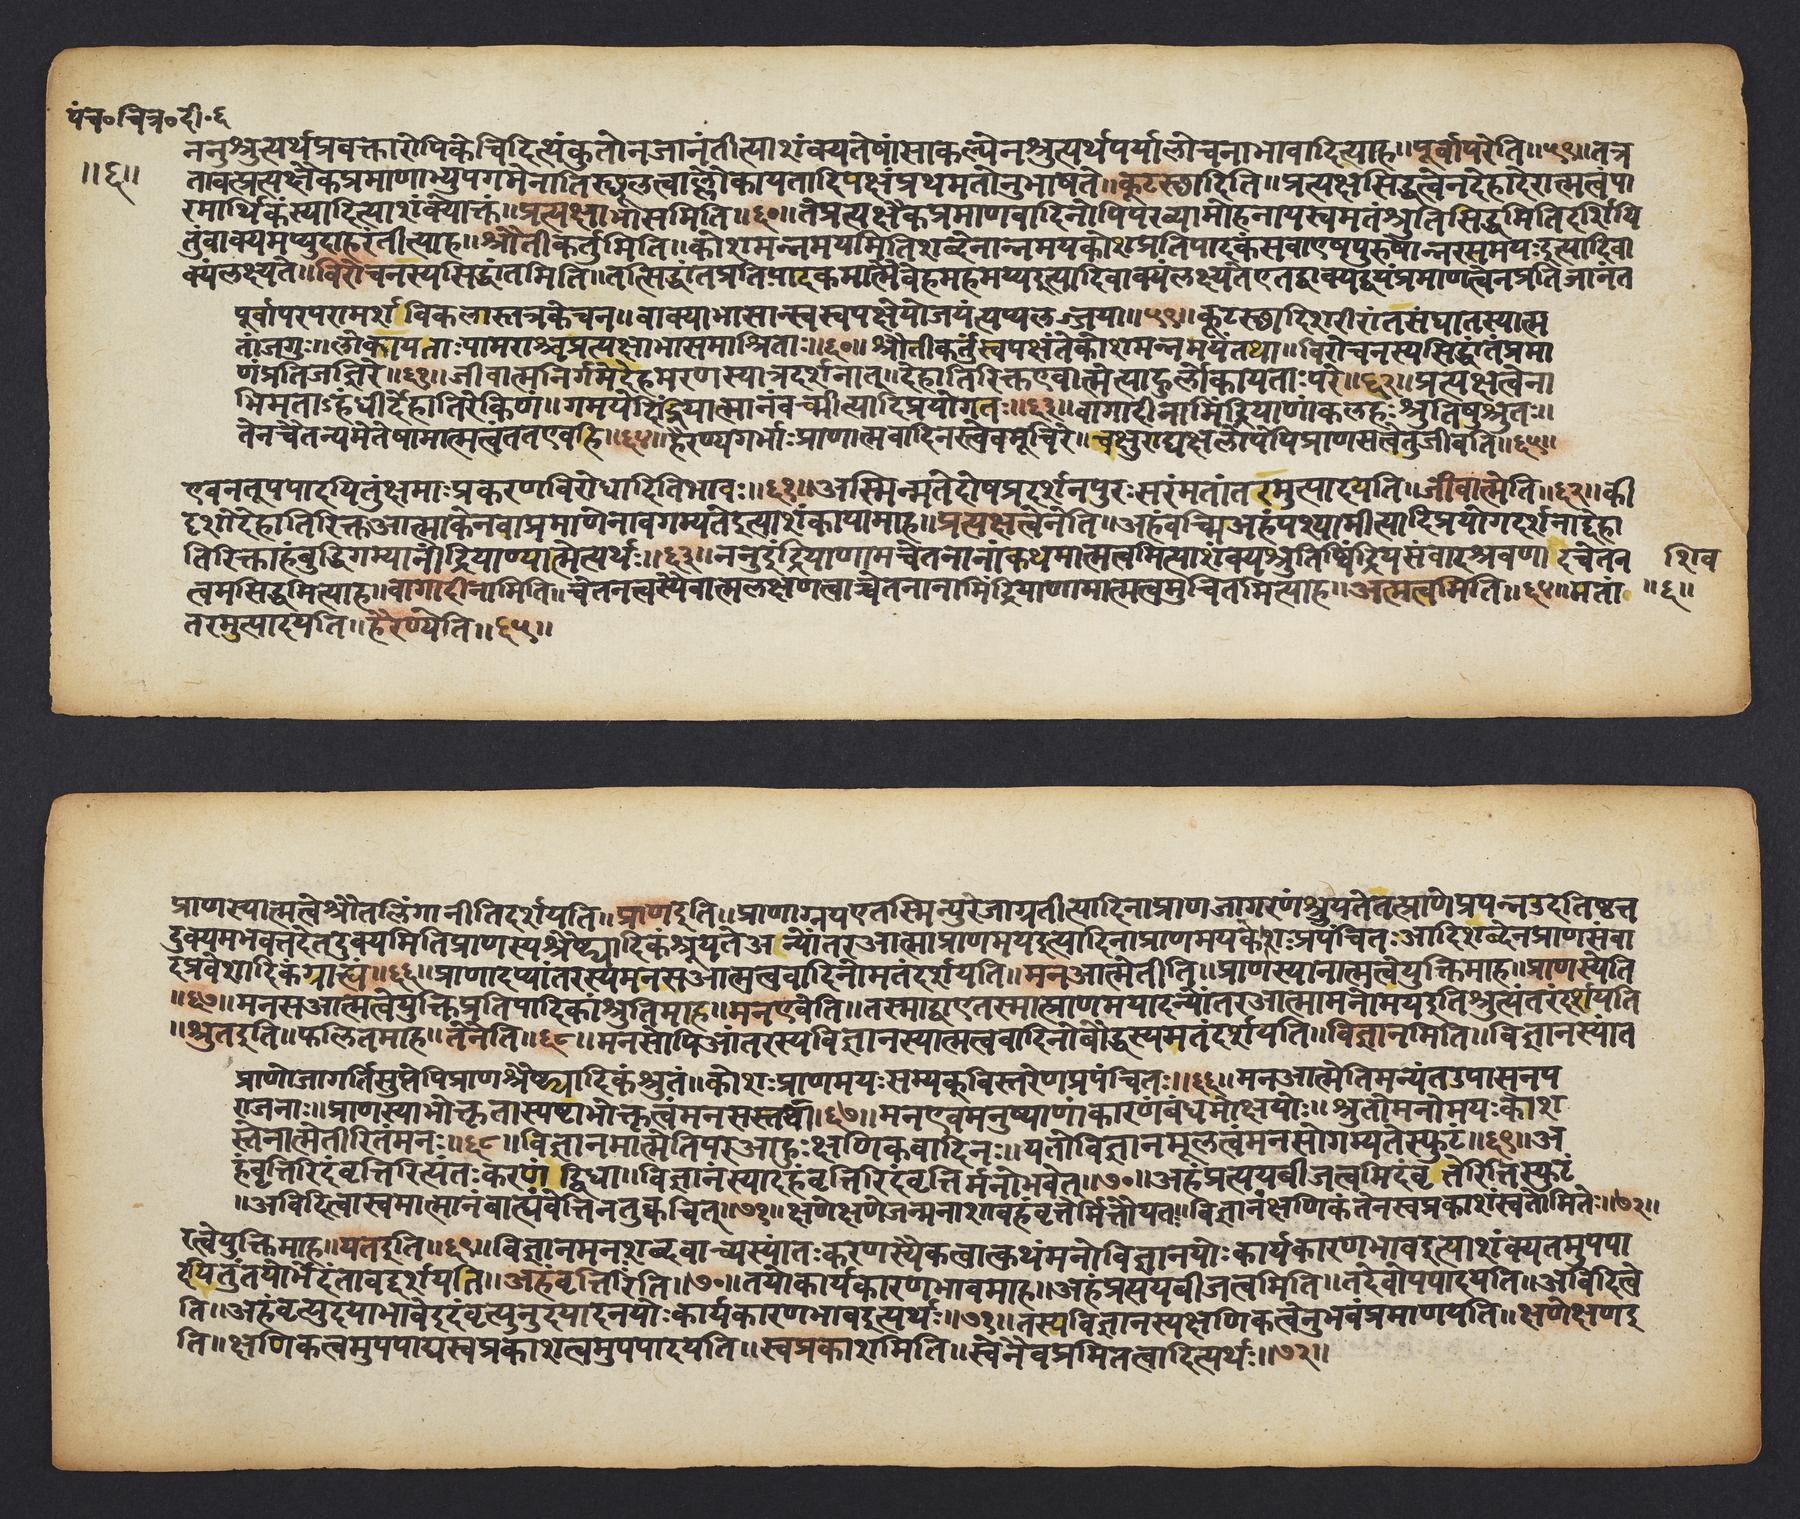 पंच०चित्र०दी०६
॥६॥
ननुश्रुत्यर्थप्रवक्तारोपिकेचिदित्थंकुतोनजानंतीत्याशंक्यतेषांसाकल्येनश्रुत्यर्थपर्यालोचनाभावादित्याह॥पूर्वापरेति॥५९॥तत्र
तावत्प्रत्यक्षैकप्रमाणाभ्युपगमेनातिस्थूलत्वाल्लोकायतादिपक्षंप्रथमतोनुभाषते॥कूटस्थादिति॥प्रत्यक्षसिद्धत्वेनदेहादेरात्मत्वंपा
रमार्थिकंस्यादित्याशंक्योक्तं॥प्रत्यक्षाभासमिति॥६०॥तेप्रत्यक्षैकप्रमाणवादिनोपिपरव्यामोहनायस्वमतंश्रुतिसिद्धमितिदर्शयि
तुंवाक्यमप्युदाहरंतीत्याह॥श्रौतीकर्तुमिति॥कोशमन्नमयमितिशब्देनान्नमयकोशप्रतिपादकंसवाएषपुरुषोन्नरसमयःइत्यादिवा
क्यंलक्ष्यते॥विरोचनस्यसिद्धांतमिति॥तत्सिद्धांतप्रतिपादकमात्मैवेहमहमय्यइत्यादिवाक्यंलक्ष्यतेएतद्वाक्यद्वयंप्रमाणत्वेनप्रतिजानत
पूर्वापरपरामर्शविकलास्तत्रकेचन॥वाक्याभासान्स्वस्वपक्षेयोजयंत्यप्यलज्जया॥५९॥कूटस्थादिशरीरांतसंघातस्यात्म
तांजगुः॥लोकायताःपामराश्चप्रत्यक्षाभासमाश्रिताः॥६०॥श्रौतीकर्तुंस्वपक्षंतेकोशमन्नमयंतथा॥विरोचनस्यसिद्धांतंप्रमा
णंप्रतिजज्ञिरे॥६१॥जीवात्मनिर्गमेदेहमरणस्यात्रदर्शनात्॥देहातिरिक्तएवात्मेत्याहुर्लोकायताःपरे॥६२॥प्रत्यक्षत्वेना
भिमताऽहंधीर्देहातिरेकिणं॥गमयेदिंद्रियात्मानंवच्मीत्यादिप्रयोगतः॥६३॥वागादीनामिंद्रियाणांकलहःश्रुतिषुश्रुतः॥
तेनचैतन्यमेतेषामात्मत्वंततएवहि॥६४॥हैरण्यगर्भाःप्राणात्मवादिनस्त्वेवमूचिरे॥चक्षुराद्यक्षलोपेपिप्राणसत्वेतुजीवति॥६५॥
एवनतूपपादयितुंक्षमाःप्रकरणविरोधादितिभावः॥६१॥अस्मिन्मतेदोषप्रदर्शनपुरःसरंमतांतरमुत्पादयति॥जीवात्मेति॥६२॥की
दृशोदेहातिरिक्तआत्माकेनवाप्रमाणेनावगम्यतेइत्याशंकायामाह॥प्रत्यक्षत्वेनेति॥अहंवच्मिअहंपश्यामीत्यादिप्रयोगदर्शनाद्देहा
तिरिक्ताहंबुद्धिगम्यानींद्रियाण्यात्मेत्यर्थः॥६३॥ननुइंद्रियाणामचेतनानांकथमात्मत्वमित्याशंक्यश्रुतिष्विंद्रियसंवादश्रवणादचेतन
शिव
त्वमसिद्धमित्याह॥वागादीनामिति॥चेतनत्वस्यैवात्मलक्षणत्वाच्चेतनानामिंद्रियाणामात्मत्वमुचितमित्याह॥आत्मत्वमिति॥६४॥मतां
॥६॥
तरमुत्पादयति॥हैरण्येति॥६५॥
प्राणस्यात्मत्वेश्रौतलिंगानीतिदर्शयति॥प्राणइति॥प्राणाग्नयएतस्मिन्पुरेजाग्रतीत्यादिनाप्राणजागरणंश्रूयतेतत्प्राणेप्रपन्नउदतिष्ठत्त
दुक्थमभवत्तदेतदुक्थमितिप्राणस्यश्रैष्ठ्यादिकंश्रूयतेअन्योंतरआत्माप्राणमयइत्यादिनाप्राणमयकोशःप्रपंचितःआदिशब्देनप्राणसंवा
दप्रवेशादिकंग्राह्यं॥६६॥प्राणादप्यांतरस्यमनसआत्मत्ववादिनोमतंदर्शयति॥मनआत्मेतीति॥प्राणस्यानात्मत्वेयुक्तिमाह॥प्राणस्येति
॥६७॥मनसआत्मत्वेयुक्तिप्रतिपादिकांश्रुतिमाह॥मनएवेति॥तस्माद्वाएतस्मात्प्राणमयादन्योंतरआत्मामनोमयइतिश्रुत्यंतरंदर्शयति
॥श्रुतइति॥फलितमाह॥तेनेति॥६८॥मनसोपिआंतरस्यविज्ञानस्यात्मत्ववादिनोबौद्धस्यमतंदर्शयति॥विज्ञानमिति॥विज्ञानस्यांत
प्राणोजागर्तिसुप्तेपिप्राणश्रैष्ठ्यादिकंश्रुतं॥कोशःप्राणमयःसम्यक्विस्तरेणप्रपंचितः॥६६॥मनआत्मेतिमन्यंतउपासनप
राजनाः॥प्राणस्याभोक्तृतास्पष्टाभोक्तृत्वंमनसस्ततः॥६७॥मनएवमनुष्याणांकारणंबंधमोक्षयोः॥श्रुतोमनोमयःकोश
स्तेनात्मेतीरितंमनः॥६८॥विज्ञानमात्मेतिपरआहुःक्षणिकवादिनः॥यतोविज्ञानमूलत्वंमनसोगम्यतेस्फुटं॥६९॥अ
हंवृत्तिरिदंवृत्तिरित्यंतःकरणंद्विधा॥विज्ञानंस्यादहंवृत्तिरिदंवृत्तिर्मनोभवेत्॥७०॥अहंप्रत्ययबीजत्वमिदंवृत्तेरितिस्फुटं
॥अविदित्वास्वमात्मानंबाह्यंवेत्तिनतुक्वचित्॥७१॥क्षणेक्षणेजन्मनाशावहंवृत्तेर्मितौयतः॥विज्ञानंक्षणिकंतेनस्वप्रकाशंस्वतोमितेः॥७२॥
रत्वेयुक्तिमाह॥यतइति॥६९॥विज्ञानमनशब्दवाच्यस्यांतःकरणस्यैकत्वात्कथंमनोविज्ञानयोःकार्यकारणभावइत्याशंक्यतमुपपा
दयितुंतयोर्भेदंतावद्दर्शयति॥अहंवृत्तिरिति॥७०॥तयोःकार्यकारणभावमाह॥अहंप्रत्ययबीजत्वमिति॥तदेवोपपादयति॥अविदित्वे
ति॥अहंवृत्त्युदयाभावेइदंवृत्त्यनुदयादनयोःकार्यकारणभावइत्यर्थः॥७१॥तस्यविज्ञानस्यक्षणिकत्वेनुभवंप्रमाणयति॥क्षणेक्षणइ
ति॥क्षणिकत्वमुपपाद्यस्वप्रकाशत्वमुपपादयति॥स्वप्रकाशमिति॥स्वेनैवप्रमितत्वादित्यर्थः॥७२॥